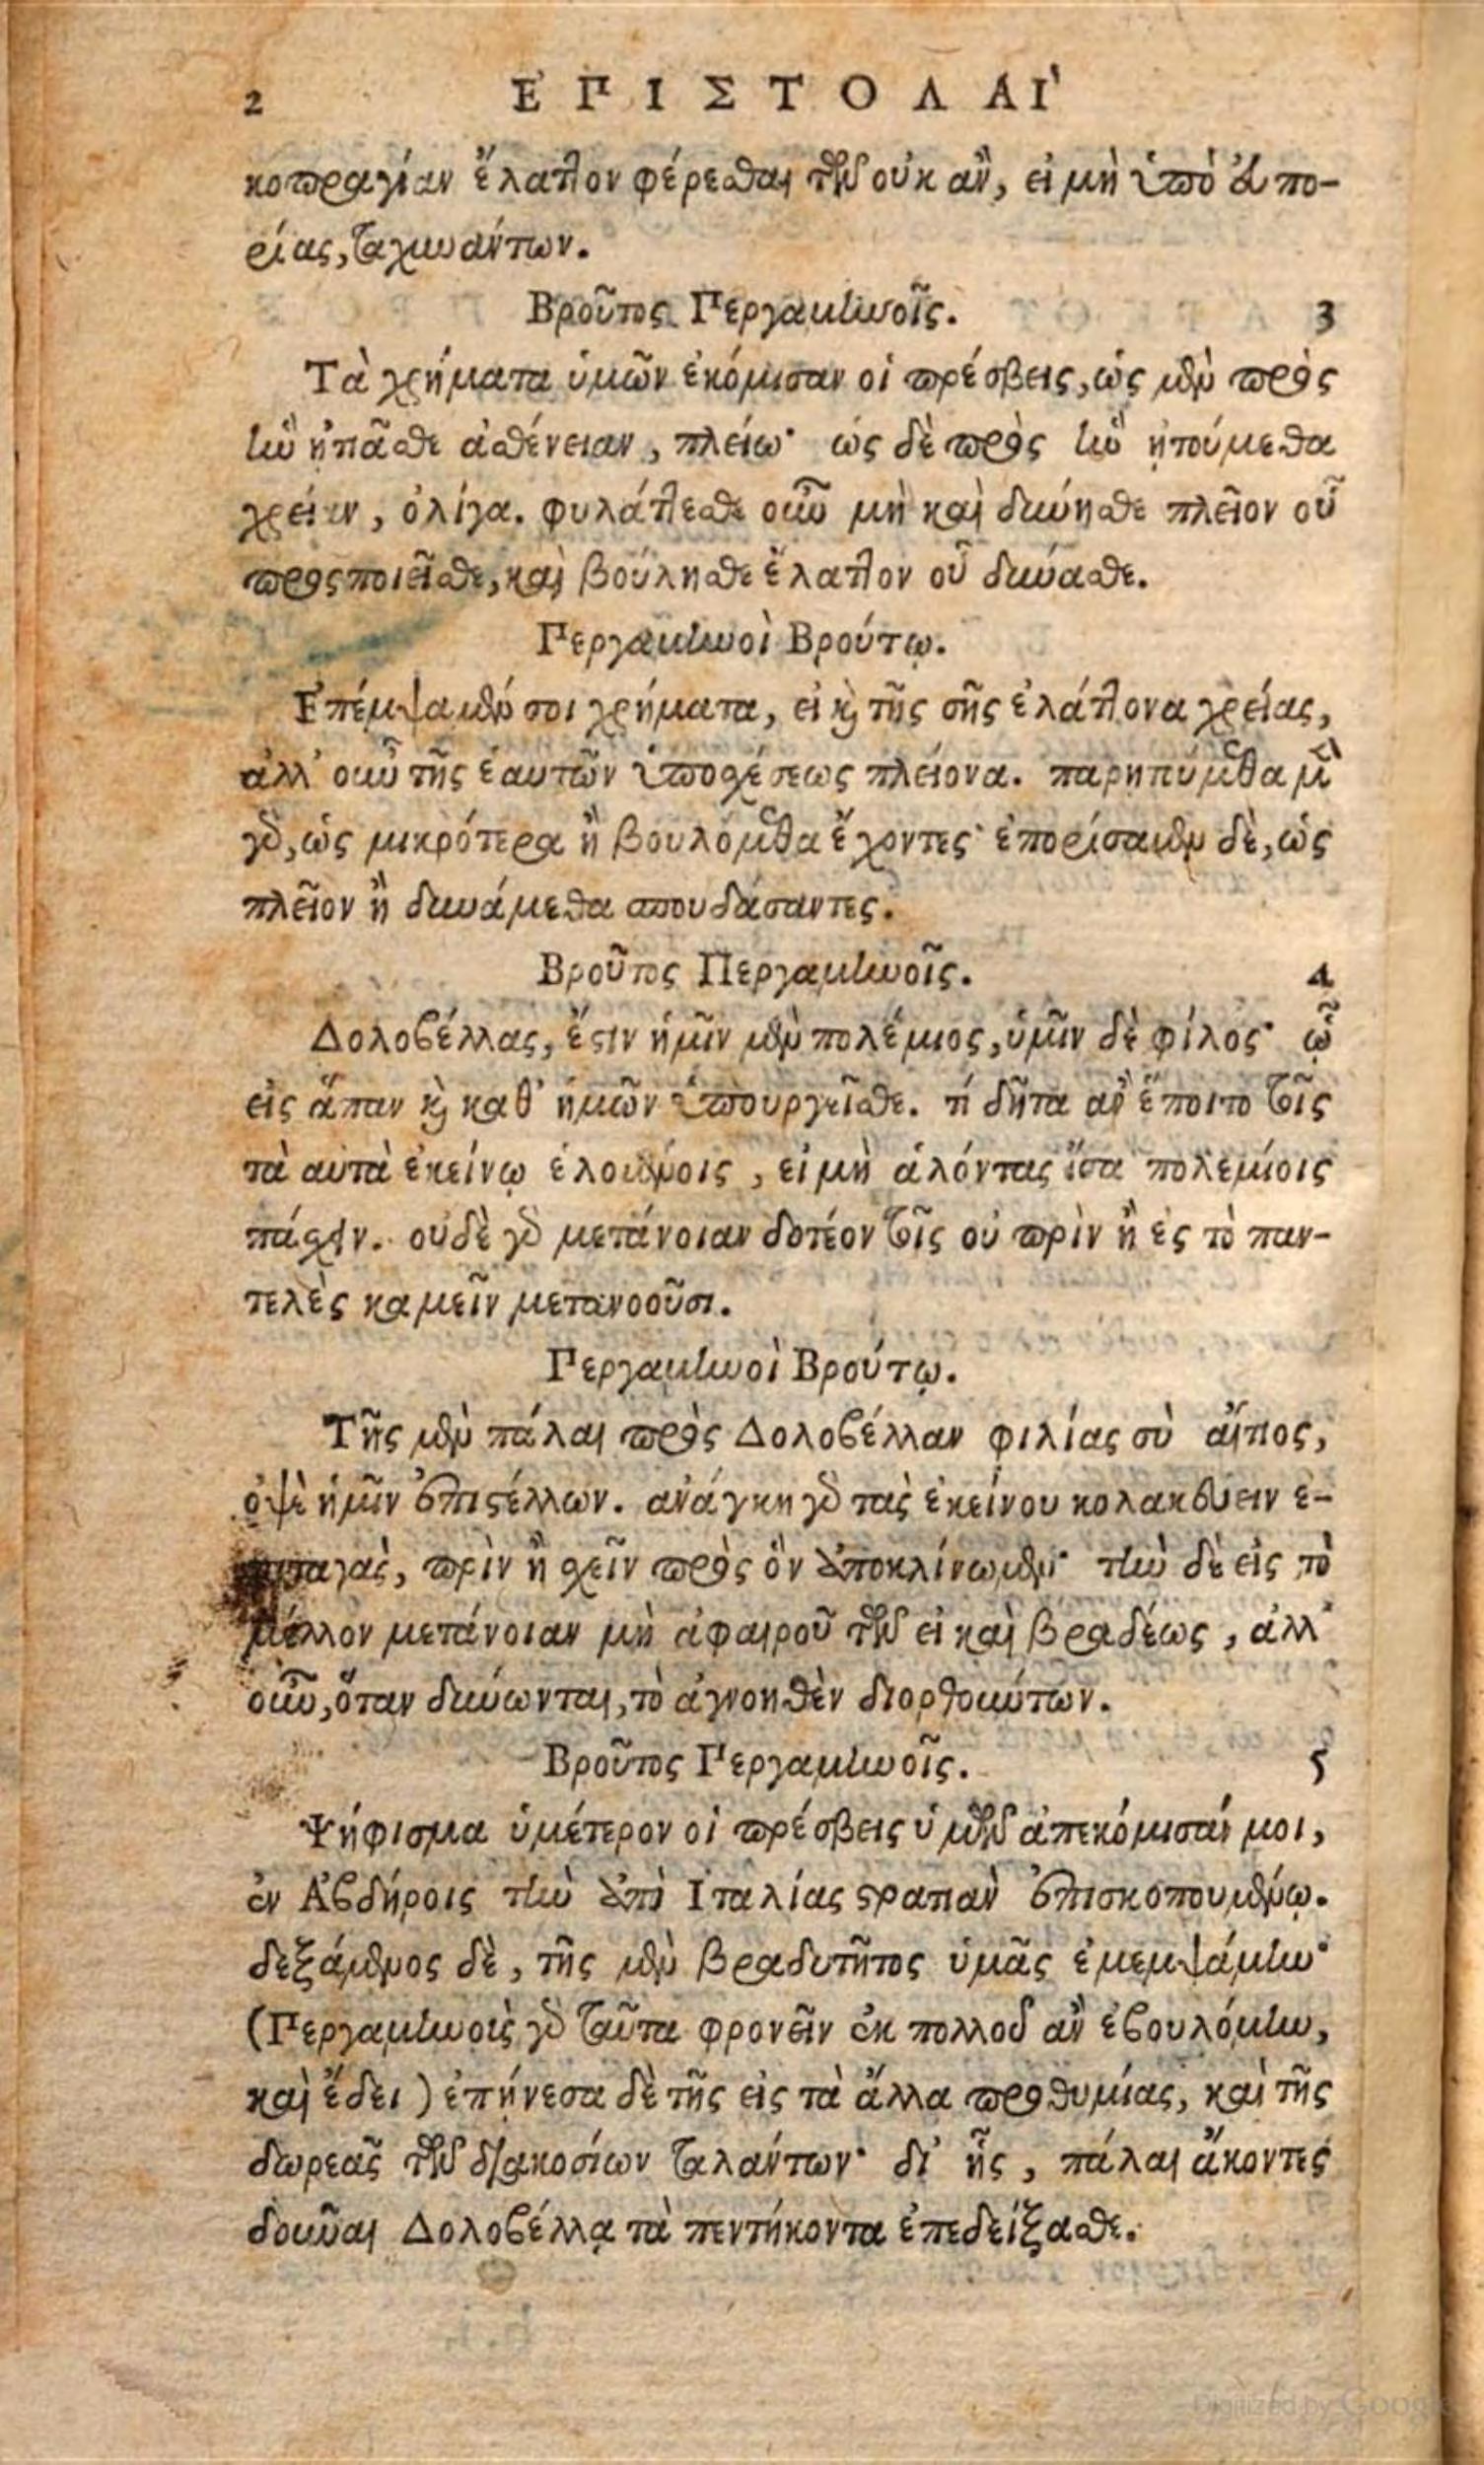 2 ΕΠΙΣΤΟΛΑΙ
κοπραγίαν ἔλαττον φέρεσθαι τῶν οὐκ ἂν, εἰ μὴ ὑπὸ ἀπο-
ρίας, ταχυνάντων.
Βροῦτος Περγαμηνοῖς. 3
Τὰ χρήματα ὑμῶν ἐκόμισαν οἱ πρέσβεις, ὡς μὲν πρὸς
ἣν ᾐτᾶσθε ἀσθένειαν, πλείω· ὡς δὲ πρὸς ἣν ᾐτούμεθα
χρείαν, ὀλίγα. φυλάττεσθε οὖν μὴ καὶ δύνησθε πλεῖον οὗ
προςποιεῖσθε, καὶ βούλησθε ἔλαττον οὗ δύνασθε.
Περγαμηνοὶ Βρούτῳ.
Ἐπέμψαμέν σοι χρήματα, εἰ καὶ τῆς σῆς ἐλάττονα χρείας,
ἀλλ' οὖν τῆς ἑαυτῶν ὑποσχέσεως πλείονα. παρῃτούμεθα μὲν
γὰρ, ὡς μικρότερα ἢ βουλόμεθα ἔχοντες· ἐπορίσαμεν δὲ, ὡς
πλεῖον ἢ δυνάμεθα σπουδάσαντες.
Βροῦτος Περγαμηνοῖς. 4
Δολοβέλλας, ἔστιν ἡμῖν μὲν πολέμιος, ὑμῖν δὲ φίλος· ᾧ
εἰς ἅπαν καὶ καθ' ἡμῶν ὑπουργεῖσθε. τί δῆτα ἂν ἕποιτο τοῖς
τὰ αὐτὰ ἐκείνῳ ἑλουμένοις, εἰ μὴ ἁλόντας ἴσα πολεμίοις
πάσχειν. οὐδὲ γὰρ μετάνοιαν δοτέον τοῖς οὐ πρὶν ἢ ἐς τὸ παν-
τελὲς καμεῖν μετανοοῦσι.
Περγαμηνοὶ Βρούτῳ.
Τῆς μὲν πάλαι πρὸς Δολοβέλλαν φιλίας σὺ αἴτιος,
ὀψὲ ἡμῖν ἐπιστέλλων. ἀνάγκη γὰρ τὰς ἐκείνου κολακεύειν ἐ-
πιταγὰς, πρὶν ἢ σχεῖν πρὸς ὃν ἀποκλίνωμεν· τὴν δὲ εἰς τὸ
μέλλον μετάνοιαν μὴ ἀφαιροῦ τῶν εἰ καὶ βραδέως, ἀλλ'
οὖν, ὅταν δύνωνται, τὸ ἀγνοηθὲν διορθούντων.
Βροῦτος Περγαμηνοῖς. 5
Ψήφισμα ὑμέτερον οἱ πρέσβεις ὑμῶν ἀπεκόμισάν μοι,
ἐν Ἀβδήροις τὴν ἀπὸ Ἰταλίας στρατιὰν ἐπισκοπουμένῳ.
δεξάμενος δὲ, τῆς μὲν βραδυτῆτος ὑμᾶς ἐμεμψάμην·
(Περγαμηνοὺς γὰρ ταῦτα φρονεῖν ἐκ πολλοῦ ἂν ἐβουλόμην,
καὶ ἔδει) ἐπῄνεσα δὲ τῆς εἰς τὰ ἄλλα προθυμίας, καὶ τῆς
δωρεᾶς τῶν διακοσίων ταλάντων· δι' ἧς, πάλαι ἄκοντες
δοῦναι Δολοβέλλᾳ τὰ πεντήκοντα ἐπεδείξασθε.
Digitized by Google